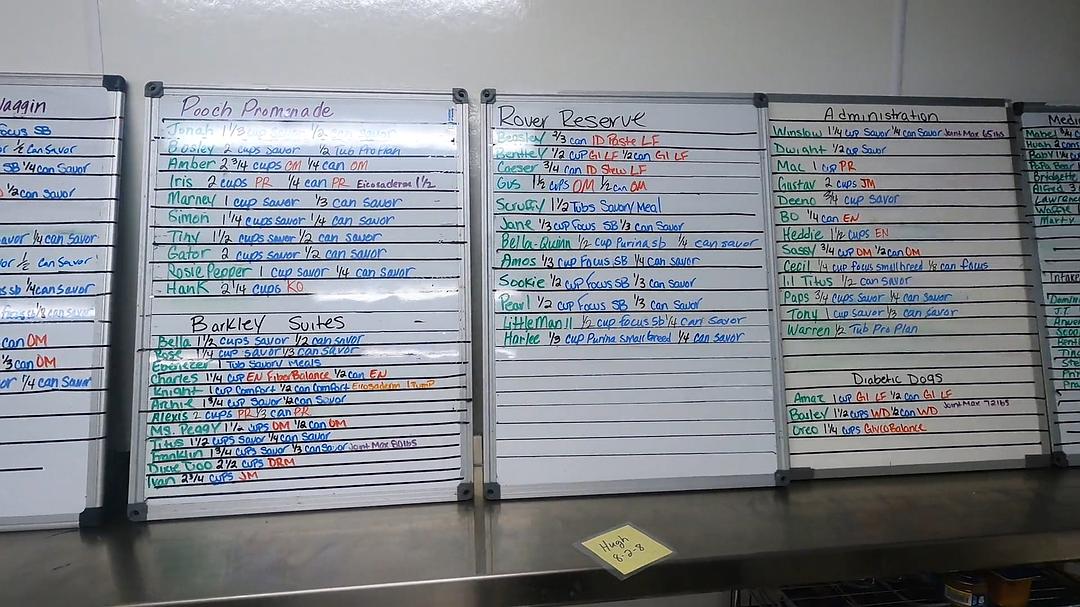 Waggin
Focus SB
or 1/2 can Savor
SB 1/4 can Savor
1/2 can Savor
avor 1/4 can Savor
or 1/2 can Savor
sb 1/4 can savor
1/8 can savor
can OM
1/3 can OM
or 1/4 can Savor
Pooch Promenade
Jonah 1 1/3 cup savor 1/2 can savor
Bosley 2 cups savor 1/2 Tub Pro Plan
Amber 2 3/4 cups OM 1/4 can OM
Iris 2 cups PR 1/4 can PR Eicosaderm 1 1/2
Marney 1 cup savor 1/3 can Savor
Simon 1 1/4 cups savor 1/4 can savor
Tiny 1 1/2 cups savor 1/2 can savor
Gator 2 cups savor 1/2 can savor
Rosie Pepper 1 cup savor 1/4 can savor
Hank 2 1/4 cups KO
Barkley Suites
Bella 1 1/2 cups savor 1/2 can savor
Rose 1/4 cup savor 1/3 can Savor
Ebenezer 1 Tub Savory Meals
Charles 1 1/4 cup EN Fiber Balance 1/2 can EN
Knight 1 cup Comfort 1/2 can Comfort Eicosaderm 1 Pump
Archie 1 3/4 cup Savor 1/2 can Savor
Alexis 2 cups PR 1/3 can PR
Ms. Peggy 1 1/2 cups OM 1/2 can OM
Titus 1 1/2 cups Savor 1/4 can Savor
Franklin 1 3/4 cups Savor 1/3 can Savor Joint Max 80lbs
Dixie Doo 2 1/2 cups DRM
Ivan 2 3/4 cups JM
Rover Reserve
Beasley 2/3 can ID Paste LF
Bentley 1/2 cup GI LF 1/2 can GI LF
Caeser 3/4 can ID Stew LF
Gus 1 1/2 cups OM 1/2 can OM
Scruffy 1 1/2 Tubs Savory Meal
Jane 1/3 cup Focus SB 1/3 can Savor
Bella-Quinn 1/2 cup Purina sb 1/4 can savor
Amos 1/3 cup Focus SB 1/4 can Savor
Sookie 1/2 cup Focus SB 1/3 can Savor
Pearl 1/2 cup Focus SB 1/3 can Savor
Little Man II 1/2 cup focus Sb 1/4 can Savor
Harlee 1/3 cup Purina small breed 1/4 can savor
Administration
Winslow 1 1/4 cup Savor 1/4 can Savor Joint Max 65lbs
Dwight 1/2 cup Savor
Mac 1 cup PR
Gustav 2 cups JM
Deeno 3/4 cup savor
Bo 1/4 can EN
Heddie 1 1/2 cups EN
Sassy 3/4 cup OM 1/2 can OM
Cecil 1/4 cup focus small breed 1/8 can focus
Lil Titus 1/2 can savor
Paps 3/4 cups Savor 1/4 can Savor
Tony 1 cup savor 1/3 can Savor
Warren 1/2 Tub Pro Plan
Diabetic Dogs
Amaz 1 cup GI LF 1 can GI LF
Bailey 1 1/2 cups WD 1/2 can WD Joint Max 72lbs
Oreo 1 1/4 cups Glyco Balance
Mabel 3/4
Hugh 2 can
Baby 1/4
Papa Bear
Bridgette
Alfred 3
Lawrence
Waffle
Marty
Intake
J.T.
Hugh
8-2-8